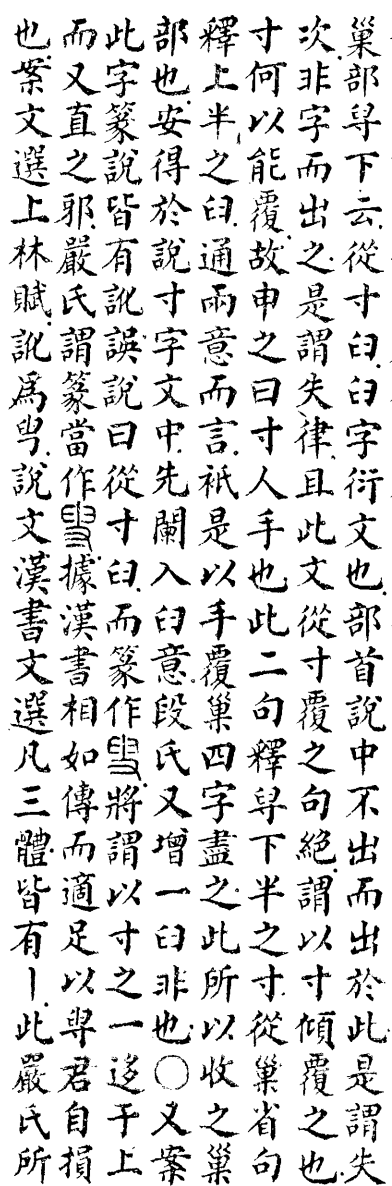 巢部下云從寸臼臼字衍文也部首說中不出而出於此是謂失
次非字而出之是謂失律且此文從寸覆之句絕謂以寸傾覆之也
寸何以能覆故申之曰寸人手也此二句釋下半之寸從巢省句
釋上半之臼通兩意而言祇是以手覆巢四字盡之此所以收之巢
部也安得於說寸字文中先闌入臼意段氏又增一臼非也○又案
此字篆說皆有訛誤說曰從寸臼而篆作將謂以寸之一迻于上
而又直之邪嚴氏謂篆當作據漢書相如傳而適足以君自損
也案文選上林賦訛爲說文漢書文選凡三體皆有丨此嚴氏所